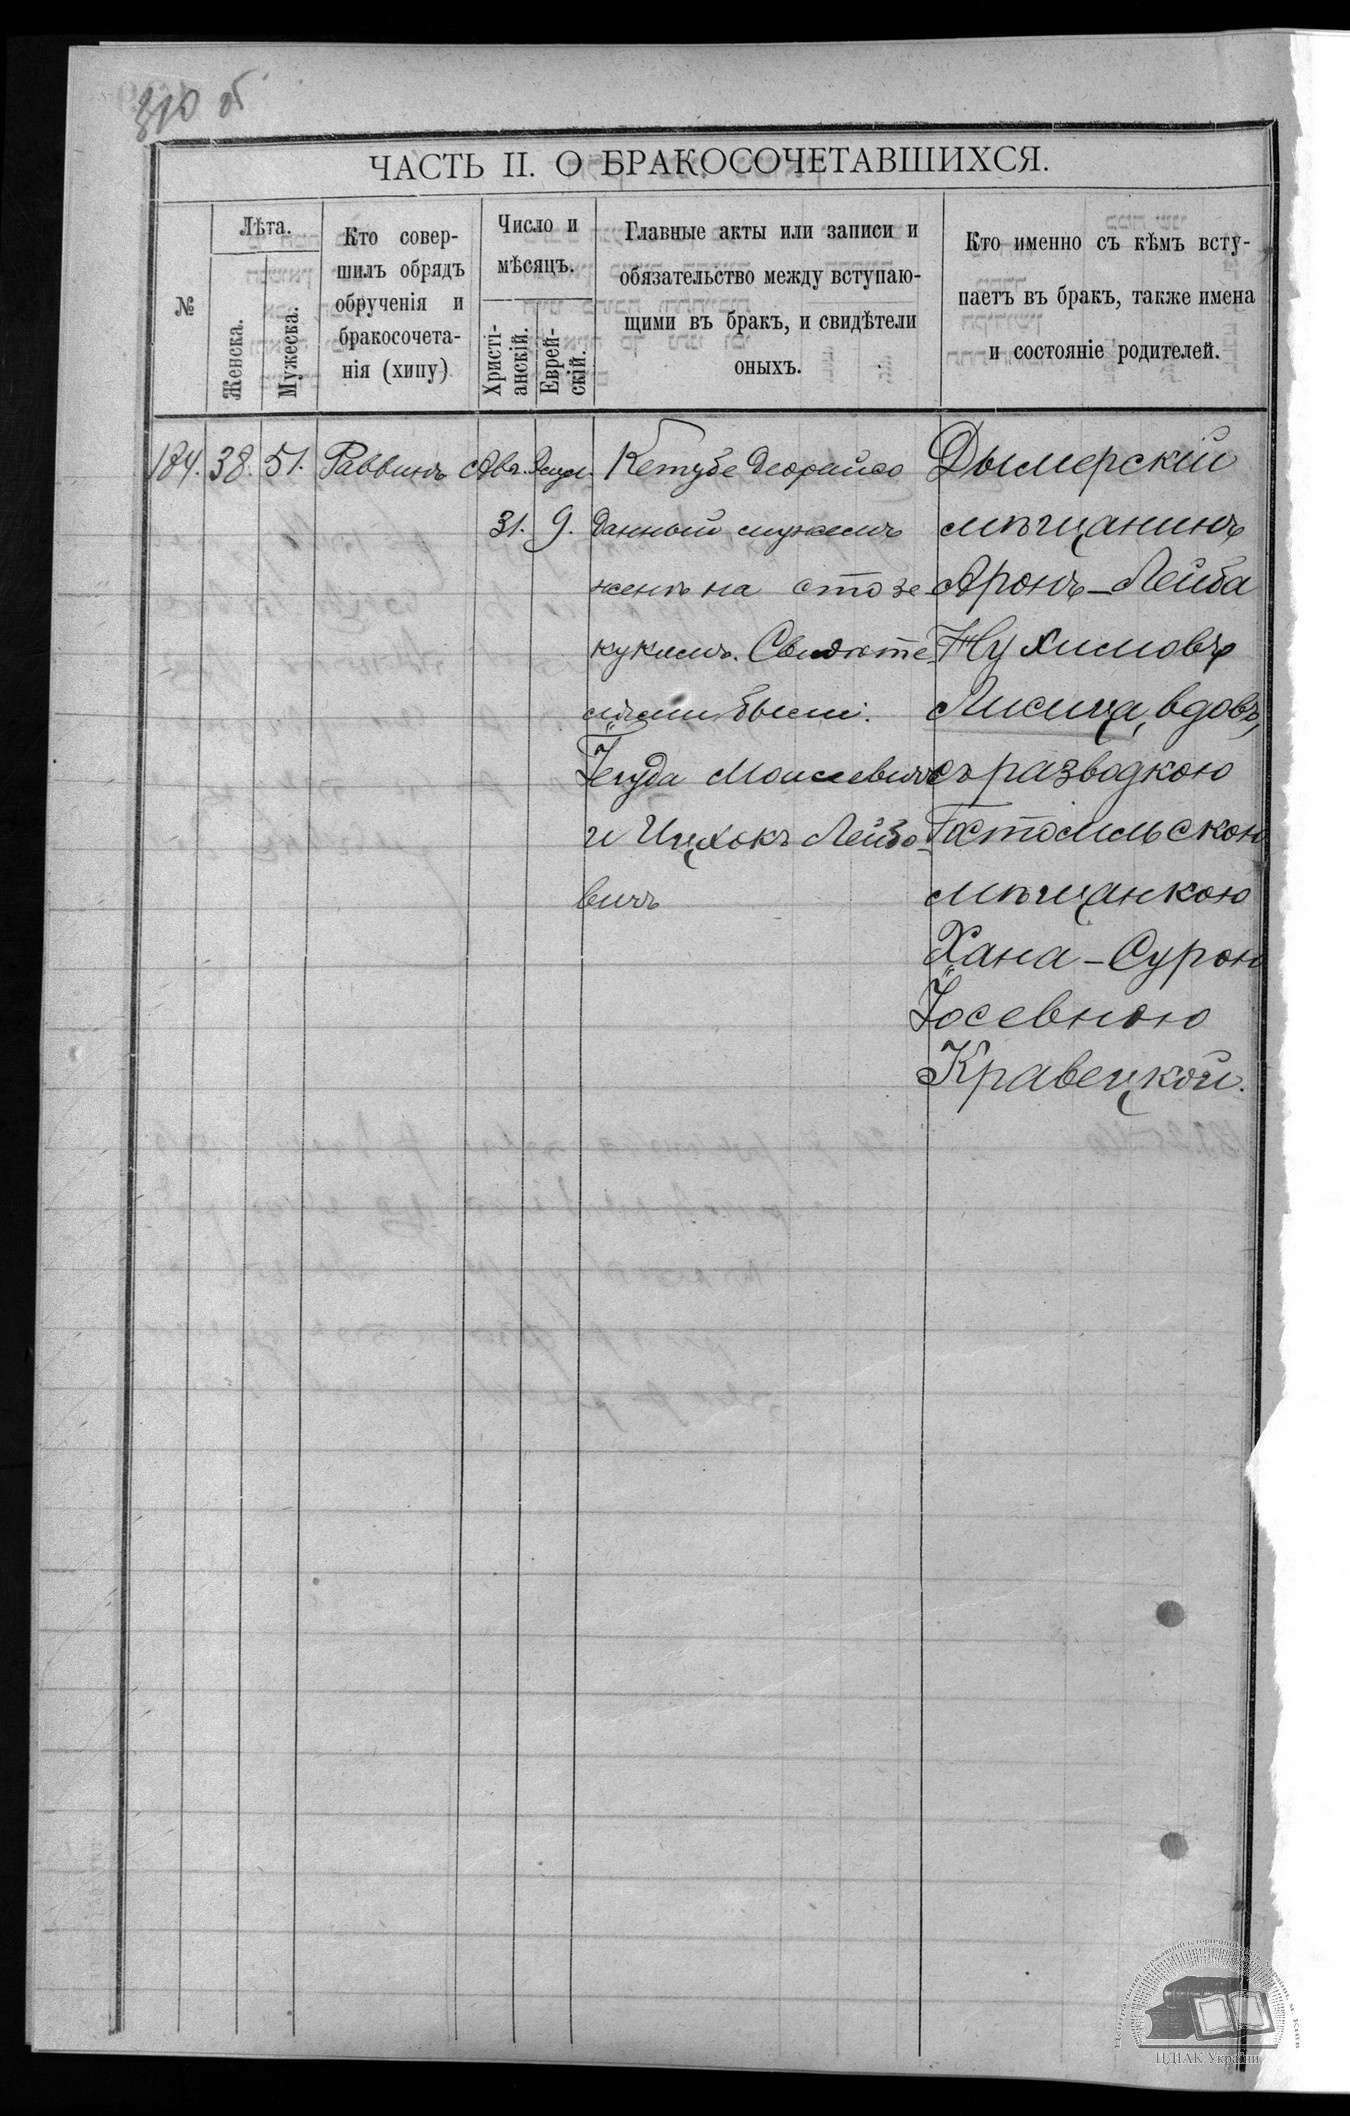 310 об
ЧАСТЬ II. О БРАКОСОЧЕТАВШИХСЯ.
№
Лѣта.
Женска.
Мужеска.
Кто совер-
шилъ обрядъ
обрученія и
бракосочета-
нія (хипу)
Число и
мѣсяцъ.
Христі-
анскій.
Еврей-
скій.
Главные акты или записи и
обязательство между вступаю-
щими въ бракъ, и свидѣтели
оныхъ.
Кто именно съ кѣмъ всту-
паетъ въ бракъ, также имена
и состояніе родителей.
184. 38. 51. Раввинъ Авг. Элул.
31. 9.
Кетубе Деорайсо
данный мужемъ
женѣ на сто зе
кукимъ. Свидѣте-
лями были:
Іегуда Моисеевичъ
и Ицхокъ Лейбо-
вичъ
Дымерскій
мѣщанинъ
Аронъ-Лейба
Нухимовъ
Лисица, вдовъ,
съ разводкою
Гостомльскою
мѣщанкою
Хана-Сурою
Іосевною
Кравецкой.
ЦДІАК України